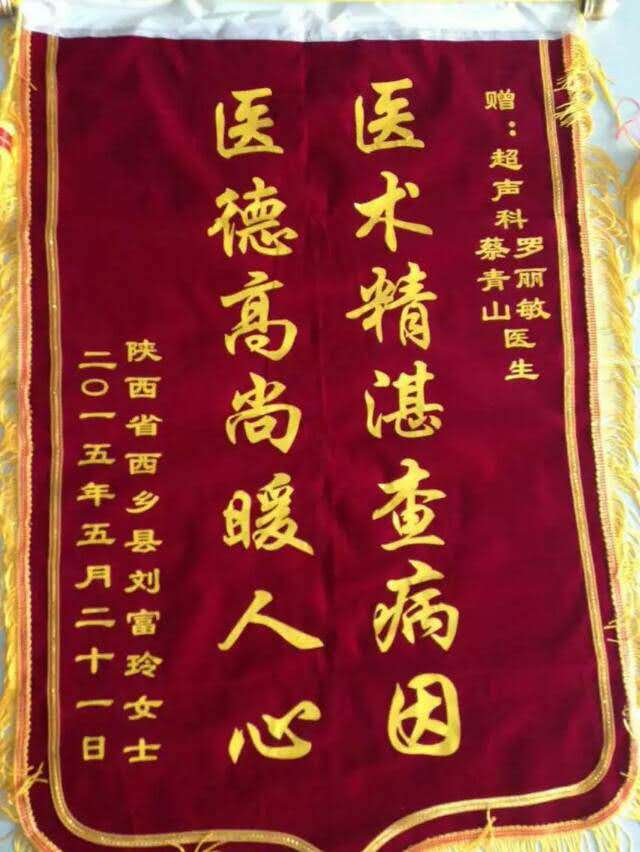 赠：超声科罗丽敏
蔡青山医生
医术精湛查病因
医德高尚暖人心
陕西省西乡县刘富玲女士
二〇一五年五月二十一日